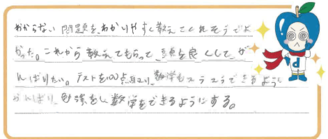 わからない問題を、わかりやすく教えてくれそうでよ
かった。これから教えてもらって、点を良くして、が
んばりたい。テストを100点とり、数学もスラスラできるよう
がんばり、勉強をし、数学をできるようにする。
d